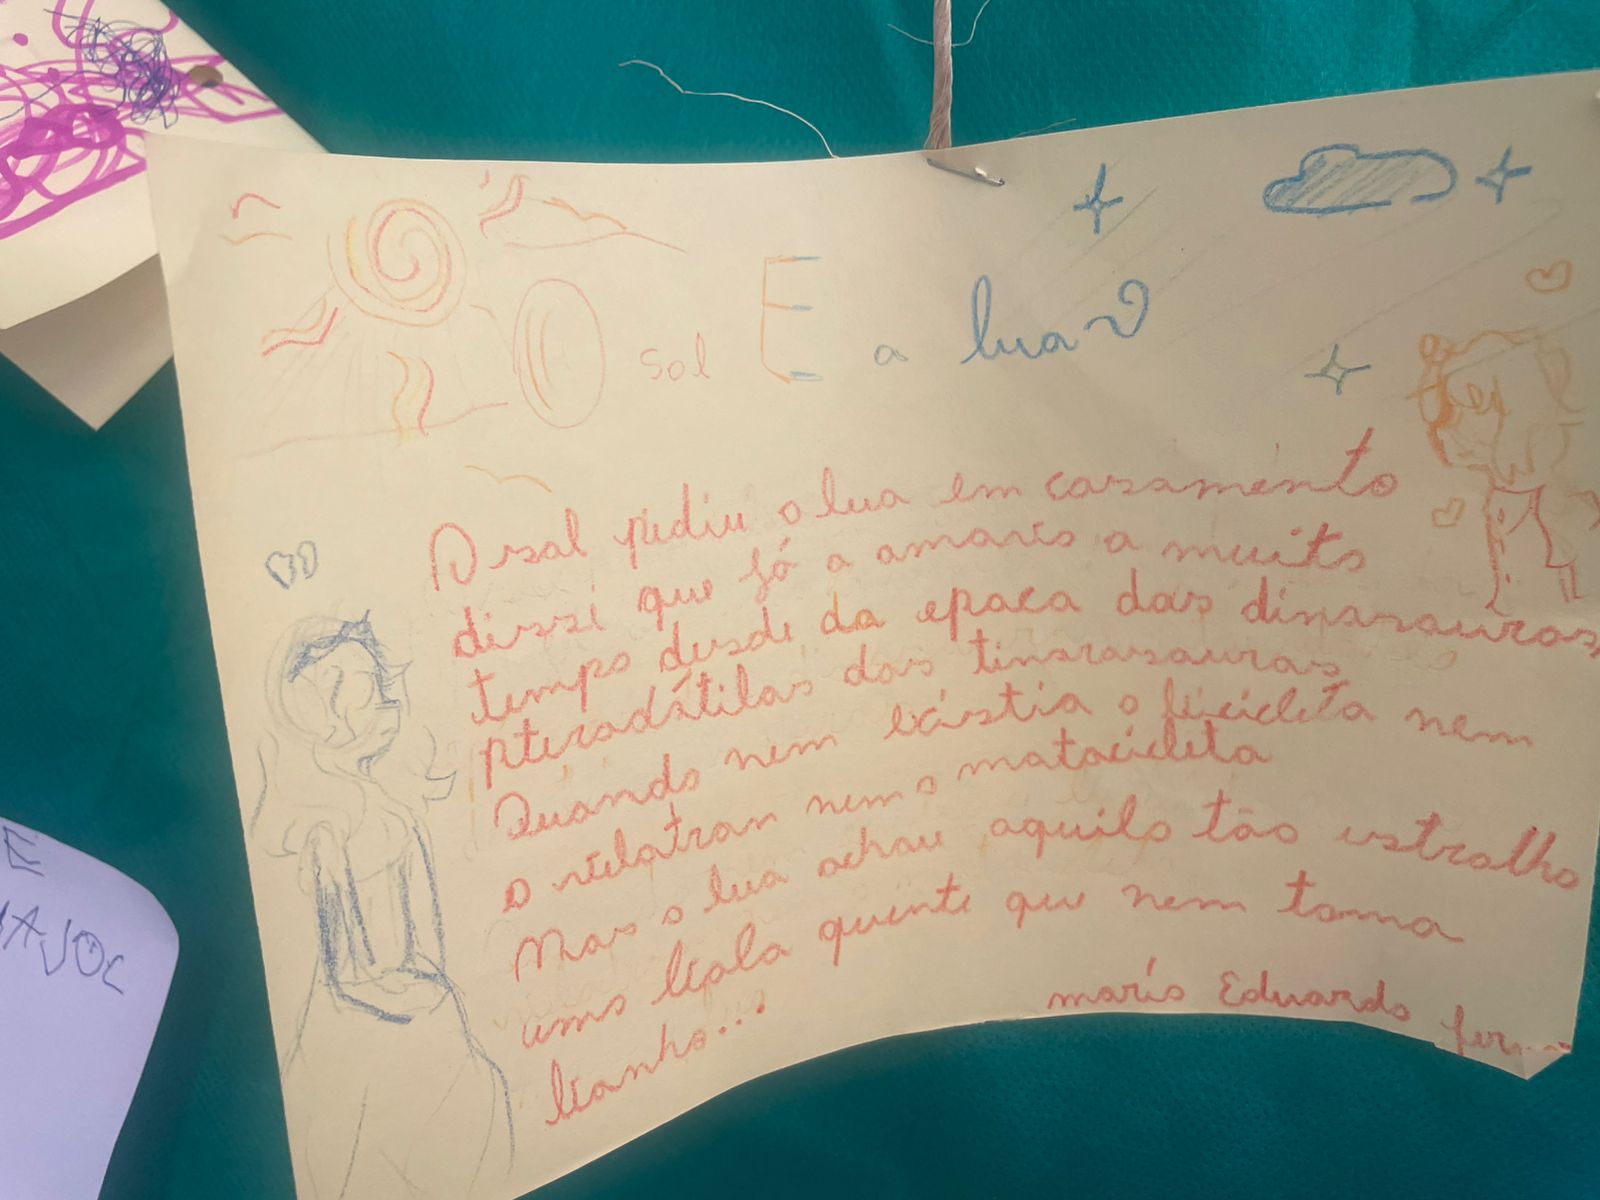 O sol E a lua
O sol pediu a lua em casamento
disse que já a amava a muito
tempo desde da epoca dos dinasauros
pterodátilos dos tirasasauros
Quando nem existia a bicicleta nem
o velotrou nem a motocicleta
Mas a lua achou aquilo tão estralho
uma bola quente que nem toma
banho...
maria Eduarda fer
E
AJOL